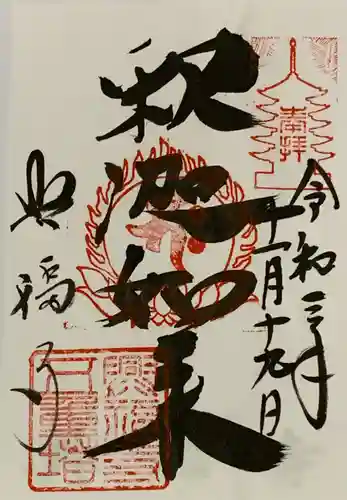 奉拝
令和三年
十一月十九日
釈迦如来
興福寺
興福寺
五重塔